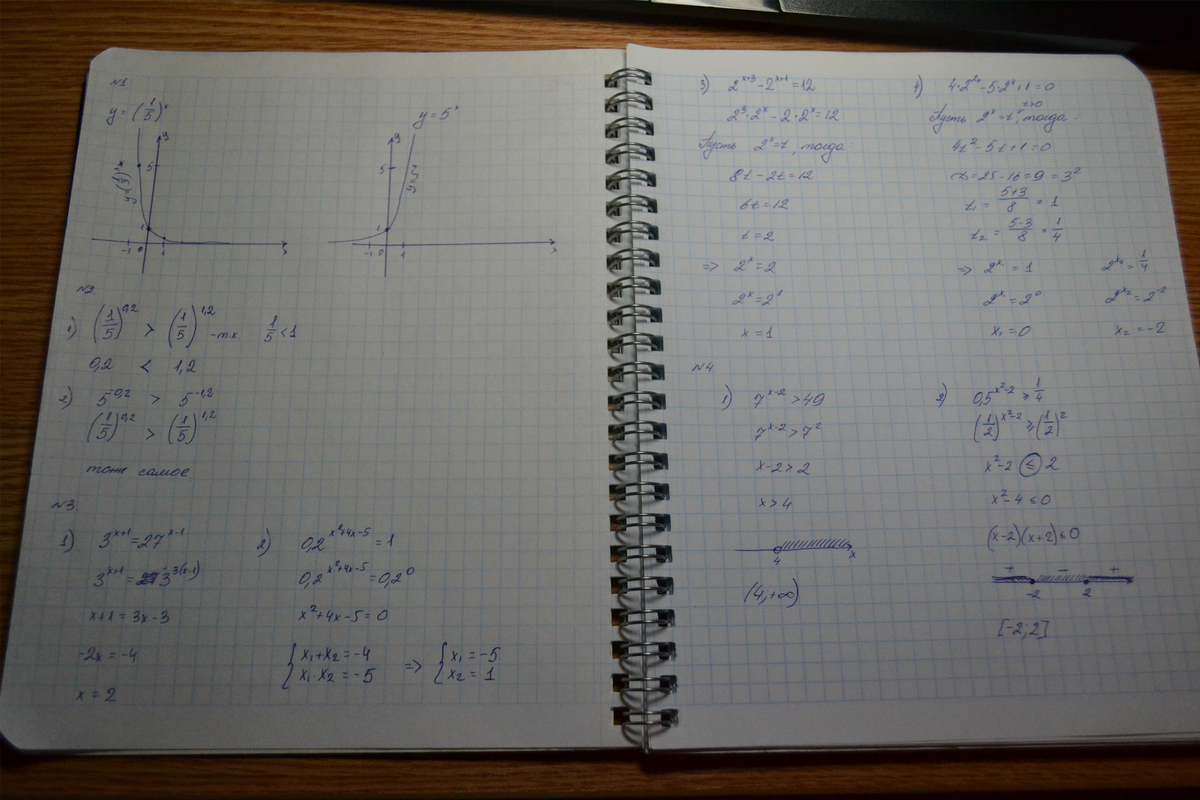 №1
y = (1/5)^x
y = 5^x
y
5
y=(1/5)^x
1
-1 0 1 x
y
5
y=5^x
1
-1 0 1 x
№2.
1) (1/5)^0,2 > (1/5)^1,2 - т.к 1/5 < 1
0,2 < 1,2
2) 5^-0,2 > 5^-1,2
(1/5)^0,2 > (1/5)^1,2
тоже самое
№3.
1) 3^x+1 = 27^x-1
3^x+1 = 3^3(x-1)
x+1 = 3x-3
-2x = -4
x = 2
2) 0,2^x²+4x-5 = 1
0,2^x²+4x-5 = 0,2^0
x²+4x-5 = 0
{ x₁+x₂ = -4 => { x₁ = -5
x₁·x₂ = -5 x₂ = 1
3) 2^x+3 - 2^x+1 = 12
2^3·2^x - 2·2^x = 12
Пусть 2^x = t, тогда:
8t - 2t = 12
6t = 12
t = 2
=> 2^x = 2
2^x = 2^1
x = 1
4) 4·2^2x - 5·2^x + 1 = 0
Пусть 2^x = t, t>0 тогда:
4t² - 5t + 1 = 0
D = 25 - 16 = 9 = 3²
t₁ = 5+3/8 = 1
t₂ = 5-3/8 = 1/4
=> 2^x₁ = 1 2^x₂ = 1/4
2^x₁ = 2^0 2^x₂ = 2^-2
x₁ = 0 x₂ = -2
№4
1) 7^x-2 > 49
7^x-2 > 7^2
x-2 > 2
x > 4
4 x
(4,+∞)
2) 0,5^x²-2 ≥ 1/4
(1/2)^x²-2 ≥ (1/2)^2
x²-2 ≤ 2
x²-4 ≤ 0
(x-2)(x+2) ≤ 0
+ - +
-2 2
[-2;2]